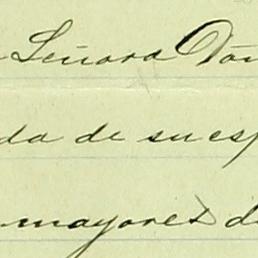 Señora Do
da de su esp
mayores d